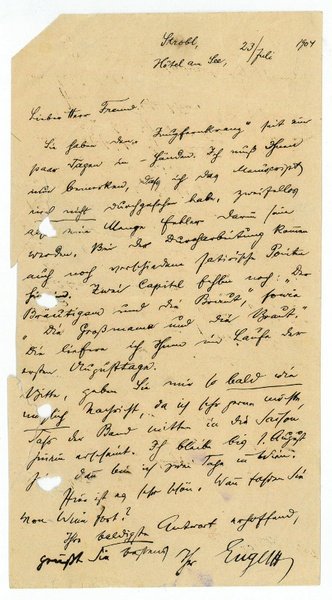 Strobl, 23/Juli 1904
Hôtel am See,
Lieber Herr Freund!
Sie haben den "Jungfernkranz" seit ein
paar Tagen in Händen. Ich muß Ihnen
nur bemerken, daß ich das Manuscript
noch nicht durchgesehen habe, zweifellos
eine Menge Fehler darin sein
werden. Bei der Durcharbeitung kommen
auch noch verschiedene satirische Pointen
Zwei Capitel fehlen noch: "Der
Bräutigam und die Braut", sowie
"Die Großmama und die Braut".
Die liefere ich Ihnen im Laufe der
ersten Augusttage.
Bitte, geben Sie mir so bald wie
möglich Nachricht, da ich sehr gerne möchte,
daß der Band mitten in die Saison
hinein erscheint. Ich bleibe bis 1. August
dann bin ich zwei Tage in Wien.
Hier ist es sehr schön. Wann fahren Sie
von Wien fort?
Ihre baldigste Antwort erhoffend,
grüßt Sie bestens Ihr